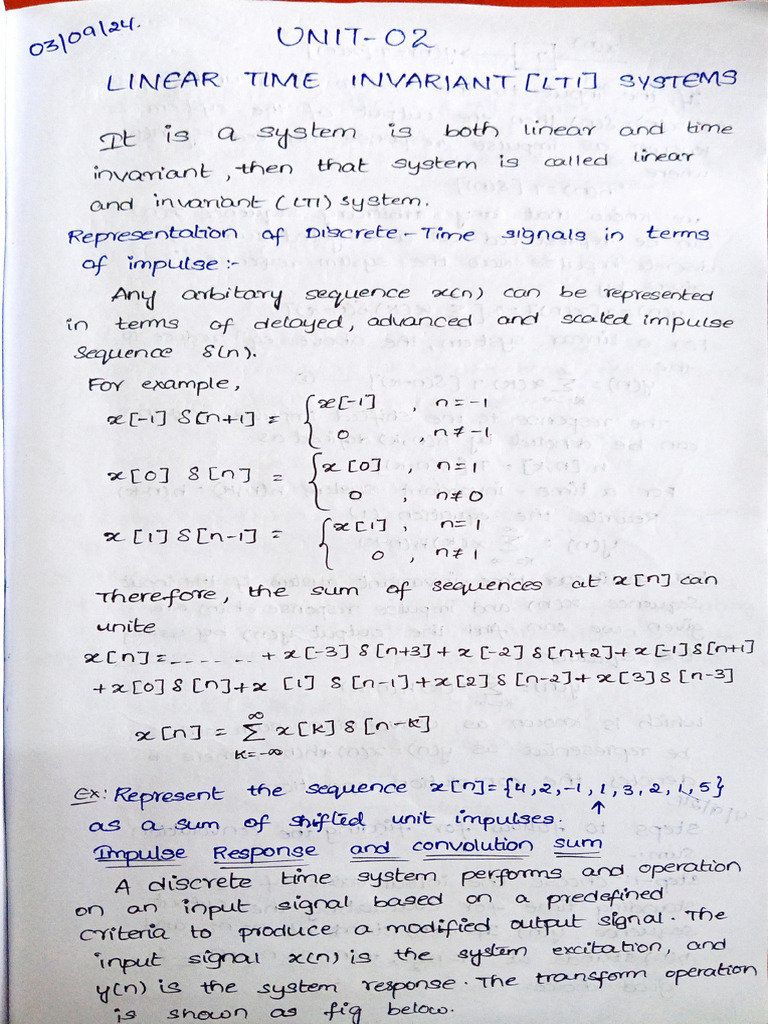 03/09/24.
UNIT-02
LINEAR TIME INVARIANT [LTI] SYSTEMS
It is a system is both linear and time
invariant, then that system is called linear
and invariant (LTI) system.
Representation of Discrete-Time signals in terms
of impulse:-
Any arbitary sequence x(n) can be represented
in terms of delayed, advanced and scaled impulse
sequence δ(n).
For example,
x[-1] δ[n+1] = { x[-1] , n=-1
0 , n≠-1
x[0] δ[n] = { x[0] , n=1
0 , n≠0
x[1] δ[n-1] = { x[1] , n=1
0 , n≠1
Therefore, the sum of sequences at x[n] can
unite
x[n] = ....... + x[-3] δ[n+3] + x[-2] δ[n+2] + x[-1] δ[n+1]
+ x[0] δ[n] + x [1] δ[n-1] + x[2] δ[n-2] + x[3] δ[n-3]
x[n] = ∞ Σ K=-∞ x[k] δ[n-k]
Ex: Represent the sequence x[n] = {4, 2, -1, 1, 3, 2, 1, 5}
↑
as a sum of shifted unit impulses.
Impulse Response and convolution sum
A discrete time system performs and operation
on an input signal based on a predefined
criteria to produce a modified output signal. The
input signal x(n) is the system excitation, and
y(n) is the system response. The transform operation
is shown as fig below.